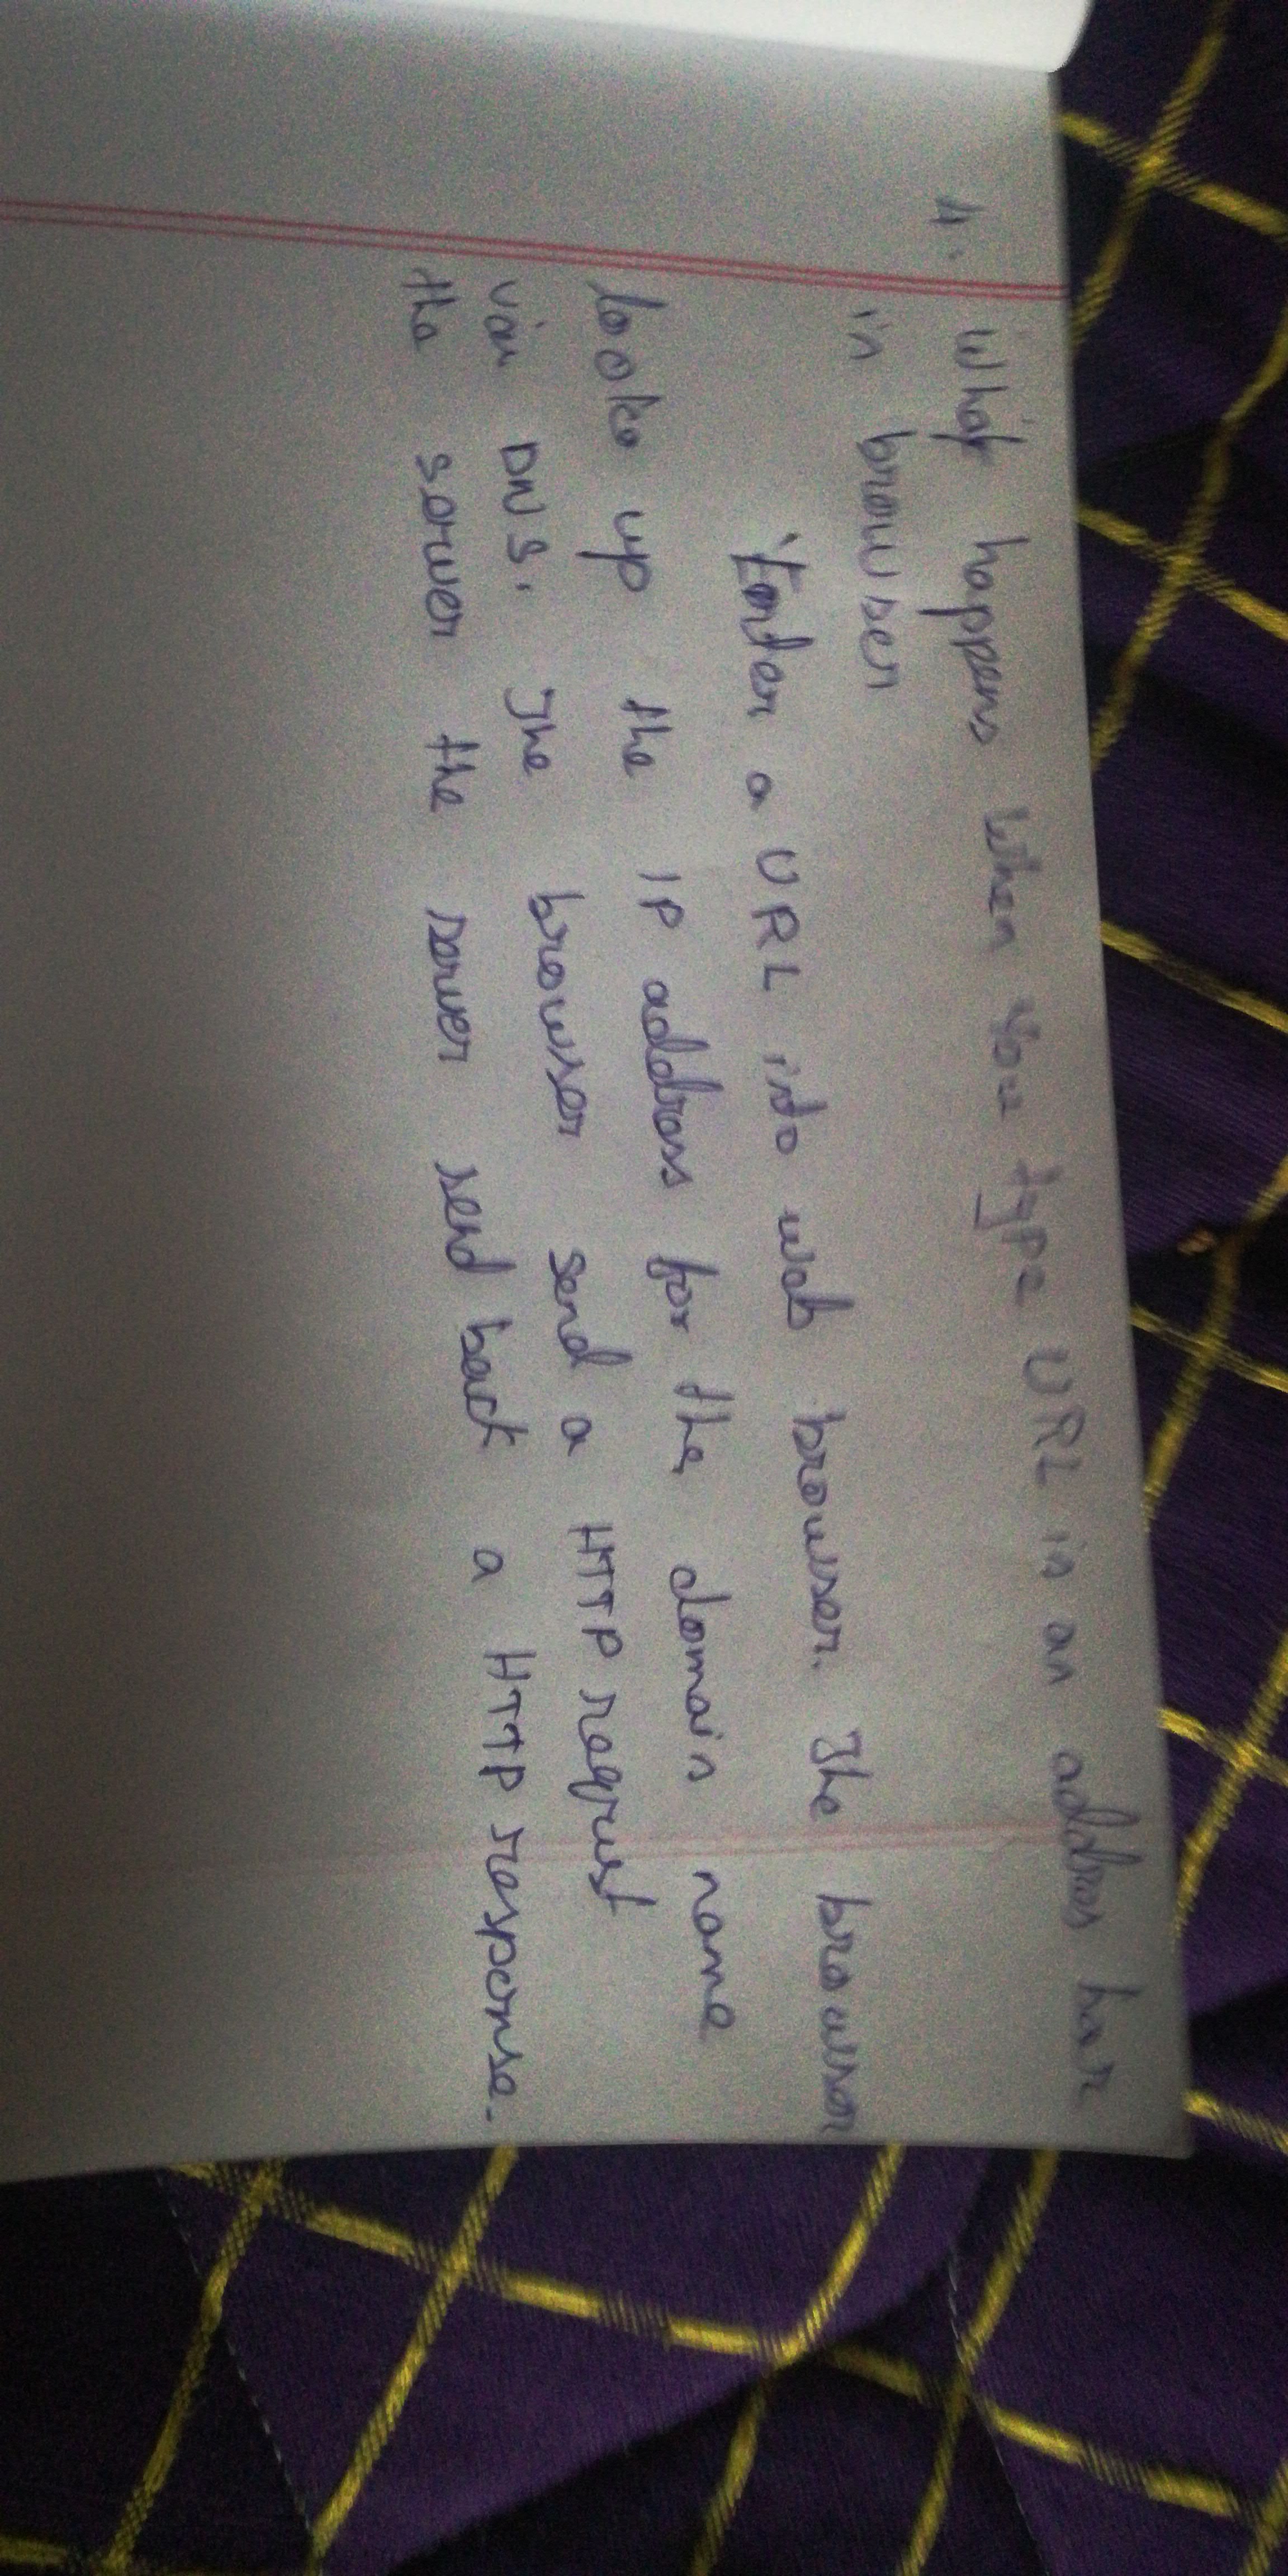 4. What happens when you type URL in an addres bar
in browser
Enter a URL into web browser. The browser
looks up the IP address for the domain name
via DNS. The browser send a HTTP request
the server the server send back a HTTP response.